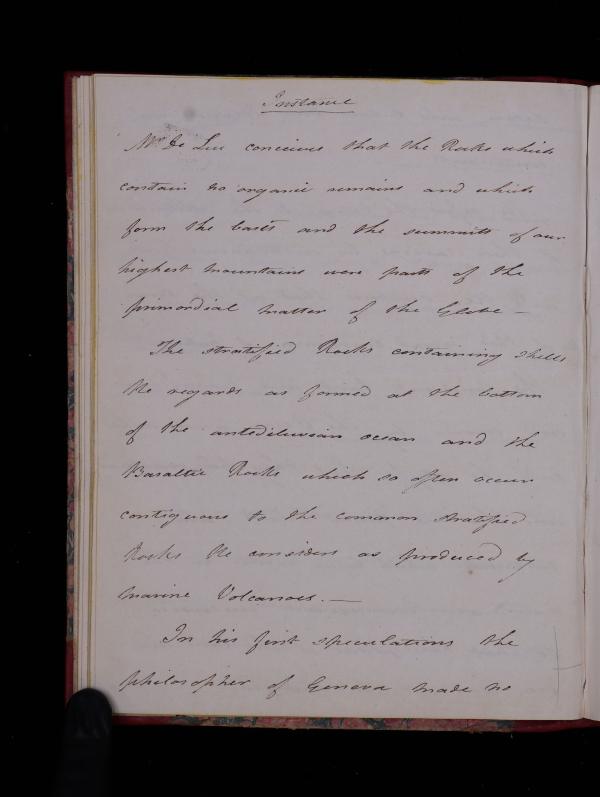 Instance
Mr. De Luc conceives that the Rocks which
contain no organic remains and which
form the basts and the summits of our
highest mountains were parts of the
primordial matter of the Globe –
The stratified Rocks containing shells
He regards as formed at the bottom
of the antediluvian ocean and the
Basaltic Rocks which so often occur
contiguous to the common stratified
Rocks He considers as produced by
marine Volcanoes. —
In his first speculations the
philosopher of Geneva made no